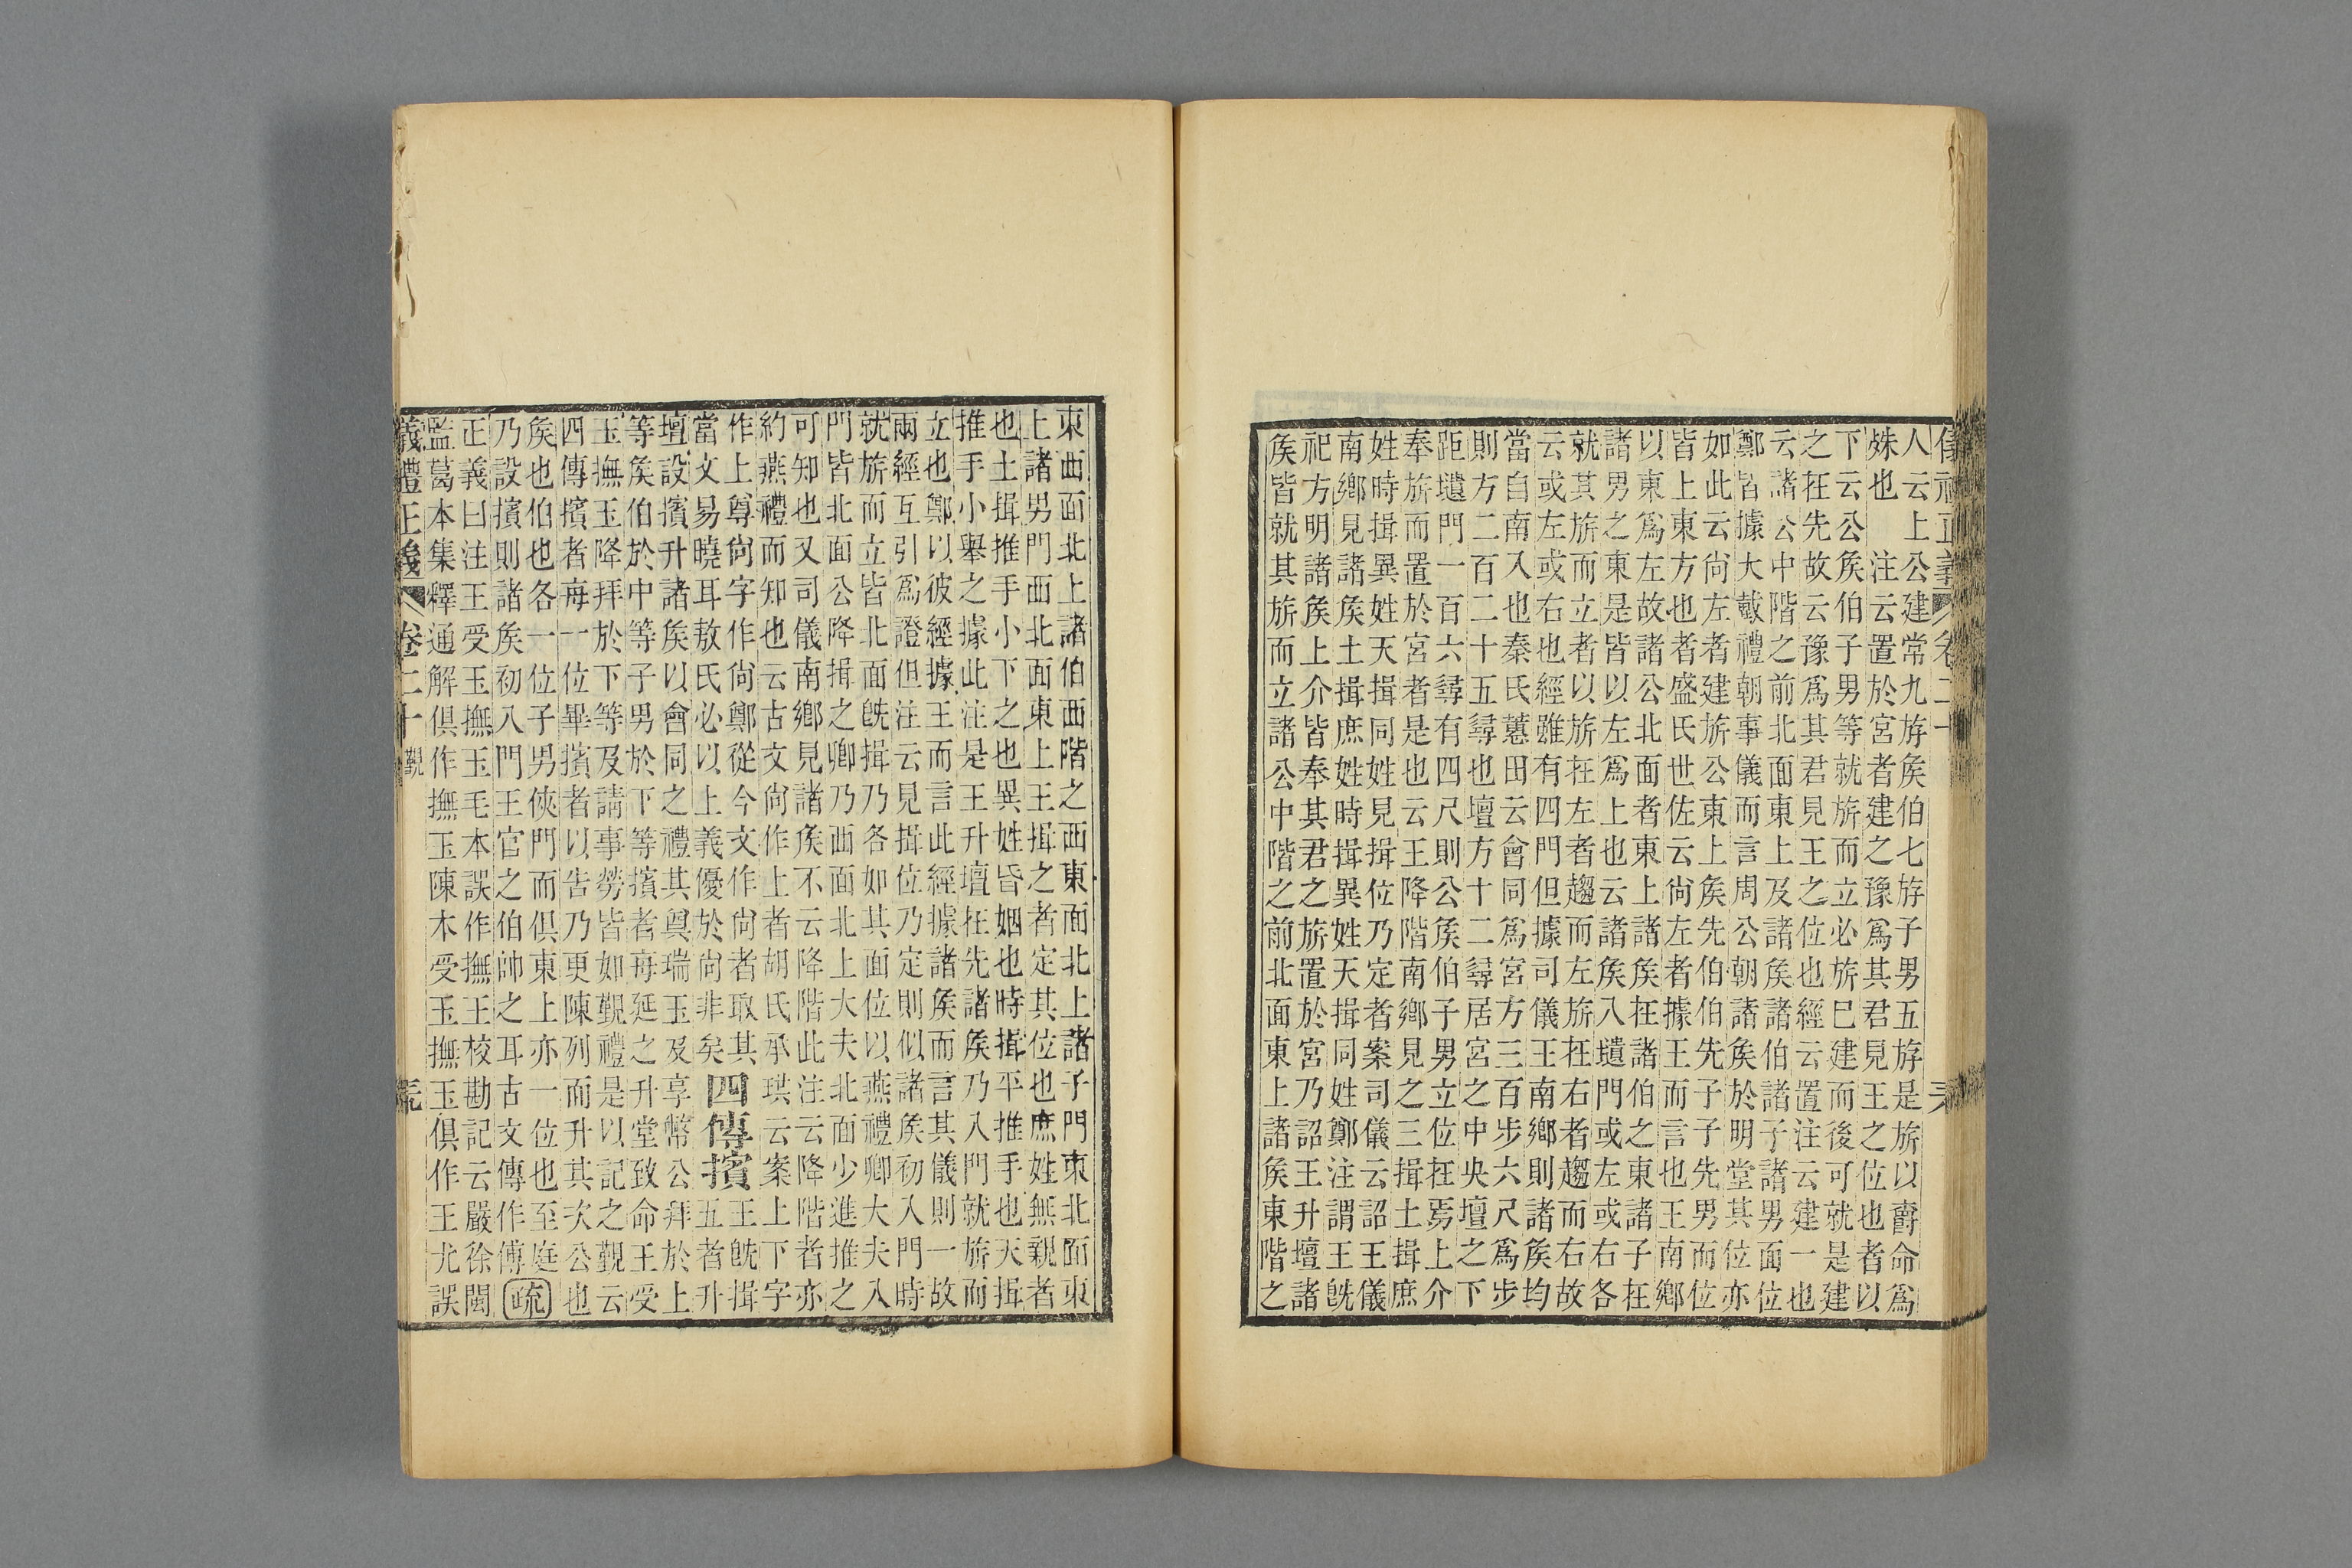 人云上公建常九斿矦伯七斿子男五斿是旂以爵命爲
殊也　注云置於宮者建之豫爲其君見王之位也者以
下云公矦伯子男等就旂而立必旂巳建而後可就是建
之在先故云豫爲其君見王之位也經云置注云建一也
云諸公中階之前北面東上及諸矦諸伯諸子諸男面位
鄭皆據大戴禮朝事儀而言周公朝諸矦於明堂其位亦
如此云尚左者建旂公東上矦先伯伯先子子先男而位
皆上東方也者盛氏世佐云尚左者據王而言也王南鄉
以東爲左故諸公北面者東上諸矦在諸伯之東諸子在
諸男之東是皆以左爲上也云諸矦入壝門或左或右各
就其旂而立者以旂在左者趨而左旂在右者趨而右故
云或左或右也經雖有四門但據司儀王南鄉則諸矦均
當自南入也秦氏蕙田云會同爲宮方三百步六尺爲步
則方二百二十五尋也壇方十二尋居宮之中央壇之下
距壝門一百六尋有四尺則公矦伯子男立位在焉上介
奉旂而置於宮者是也云王降階南鄉見之三揖土揖庶
姓時揖異姓天揖同姓見揖位乃定者案司儀云詔王儀
南鄉見諸矦土揖庶姓時揖異姓天揖同姓鄭注謂王旣
祀方明諸矦上介皆奉其君之旂置於宮乃詔王升壇諸
矦皆就其旂而立諸公中階之前北面東上諸矦東階之
東西面北上諸伯西階之西東面北上諸子門東北面東
上諸男門西北面東上王揖之者定其位也庶姓無親者
也土揖推手小下之也異姓昏姻也時揖平推手也天揖
推手小舉之據此注是王升壇在先諸矦乃入門就旂而
立也鄭以彼經據王而言此經據諸矦而言其儀則一故
兩經互引爲證但注云見揖位乃定則似諸矦初入門時
就旂而立皆北面旣揖乃各如其面位以燕禮卿大夫入
門皆北面公降揖之卿乃西面北上大夫北面少進推之
可知也又司儀南鄉見諸矦不云降階此注云降階者亦
約燕禮而知也云古文尚作上者胡氏承珙云案上下字
作上尊尚字作尚鄭從今文作尚者取其
當文易曉耳敖氏必以上義優於尚非矣
四傳擯
王旣揖
五者升
壇設擯升諸矦以會同之禮其奠瑞玉及享幣公拜於上
等矦伯於中等子男於下等擯者每延之升堂致命王受
玉撫玉降拜於下等及請事勞皆如覲禮是以記之覲云
四傳擯者每一位畢擯者以告乃更陳列而升其次公也
矦也伯也各一位子男俠門而俱東上亦一位也至庭
乃設擯則諸矦初入門王官之伯帥之耳古文傳作傅疏
正義曰注王受玉撫玉毛本誤作撫王校勘記云嚴徐閩
監葛本集釋通解俱作撫玉陳本受玉撫玉俱作王尤誤
儀禮正義　卷二十　覲